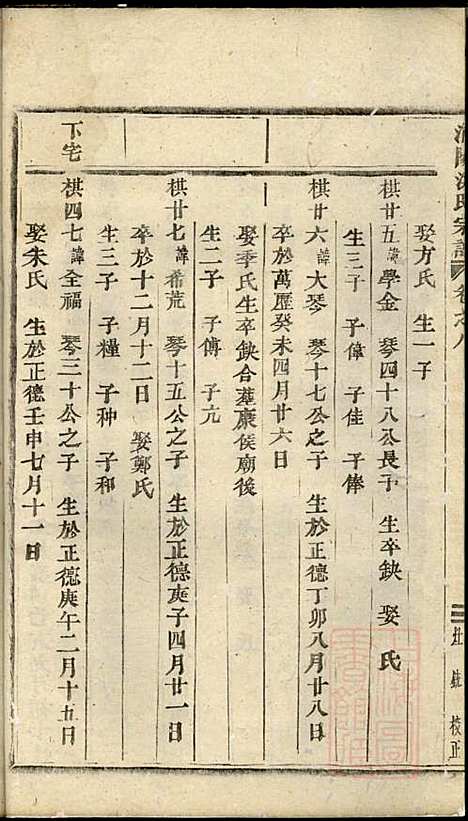 氏宗譜 卷之八
娶方氏 生一子
棋廿五 諱 學金 琴四十八公長子 生卒缺 娶 氏
生三子 子偉 子佳 子俸
棋廿六 諱 大琴 琴十七公之子 生於正德丁卯八月廿八日
卒於萬歷癸未四月廿六日
娶季氏生卒缺合葬康侯廟後
生二子 子傅 子亢
棋廿七 諱 希荒 琴十五公之子 生於正德庚子四月廿一日
卒於十二月十二日 娶鄭氏
生三子 子糧 子种 子和
下宅
棋四七 諱 全福 琴三十公之子 生於正德庚午二月十五日
娶朱氏 生於正德壬申七月十一日
校正